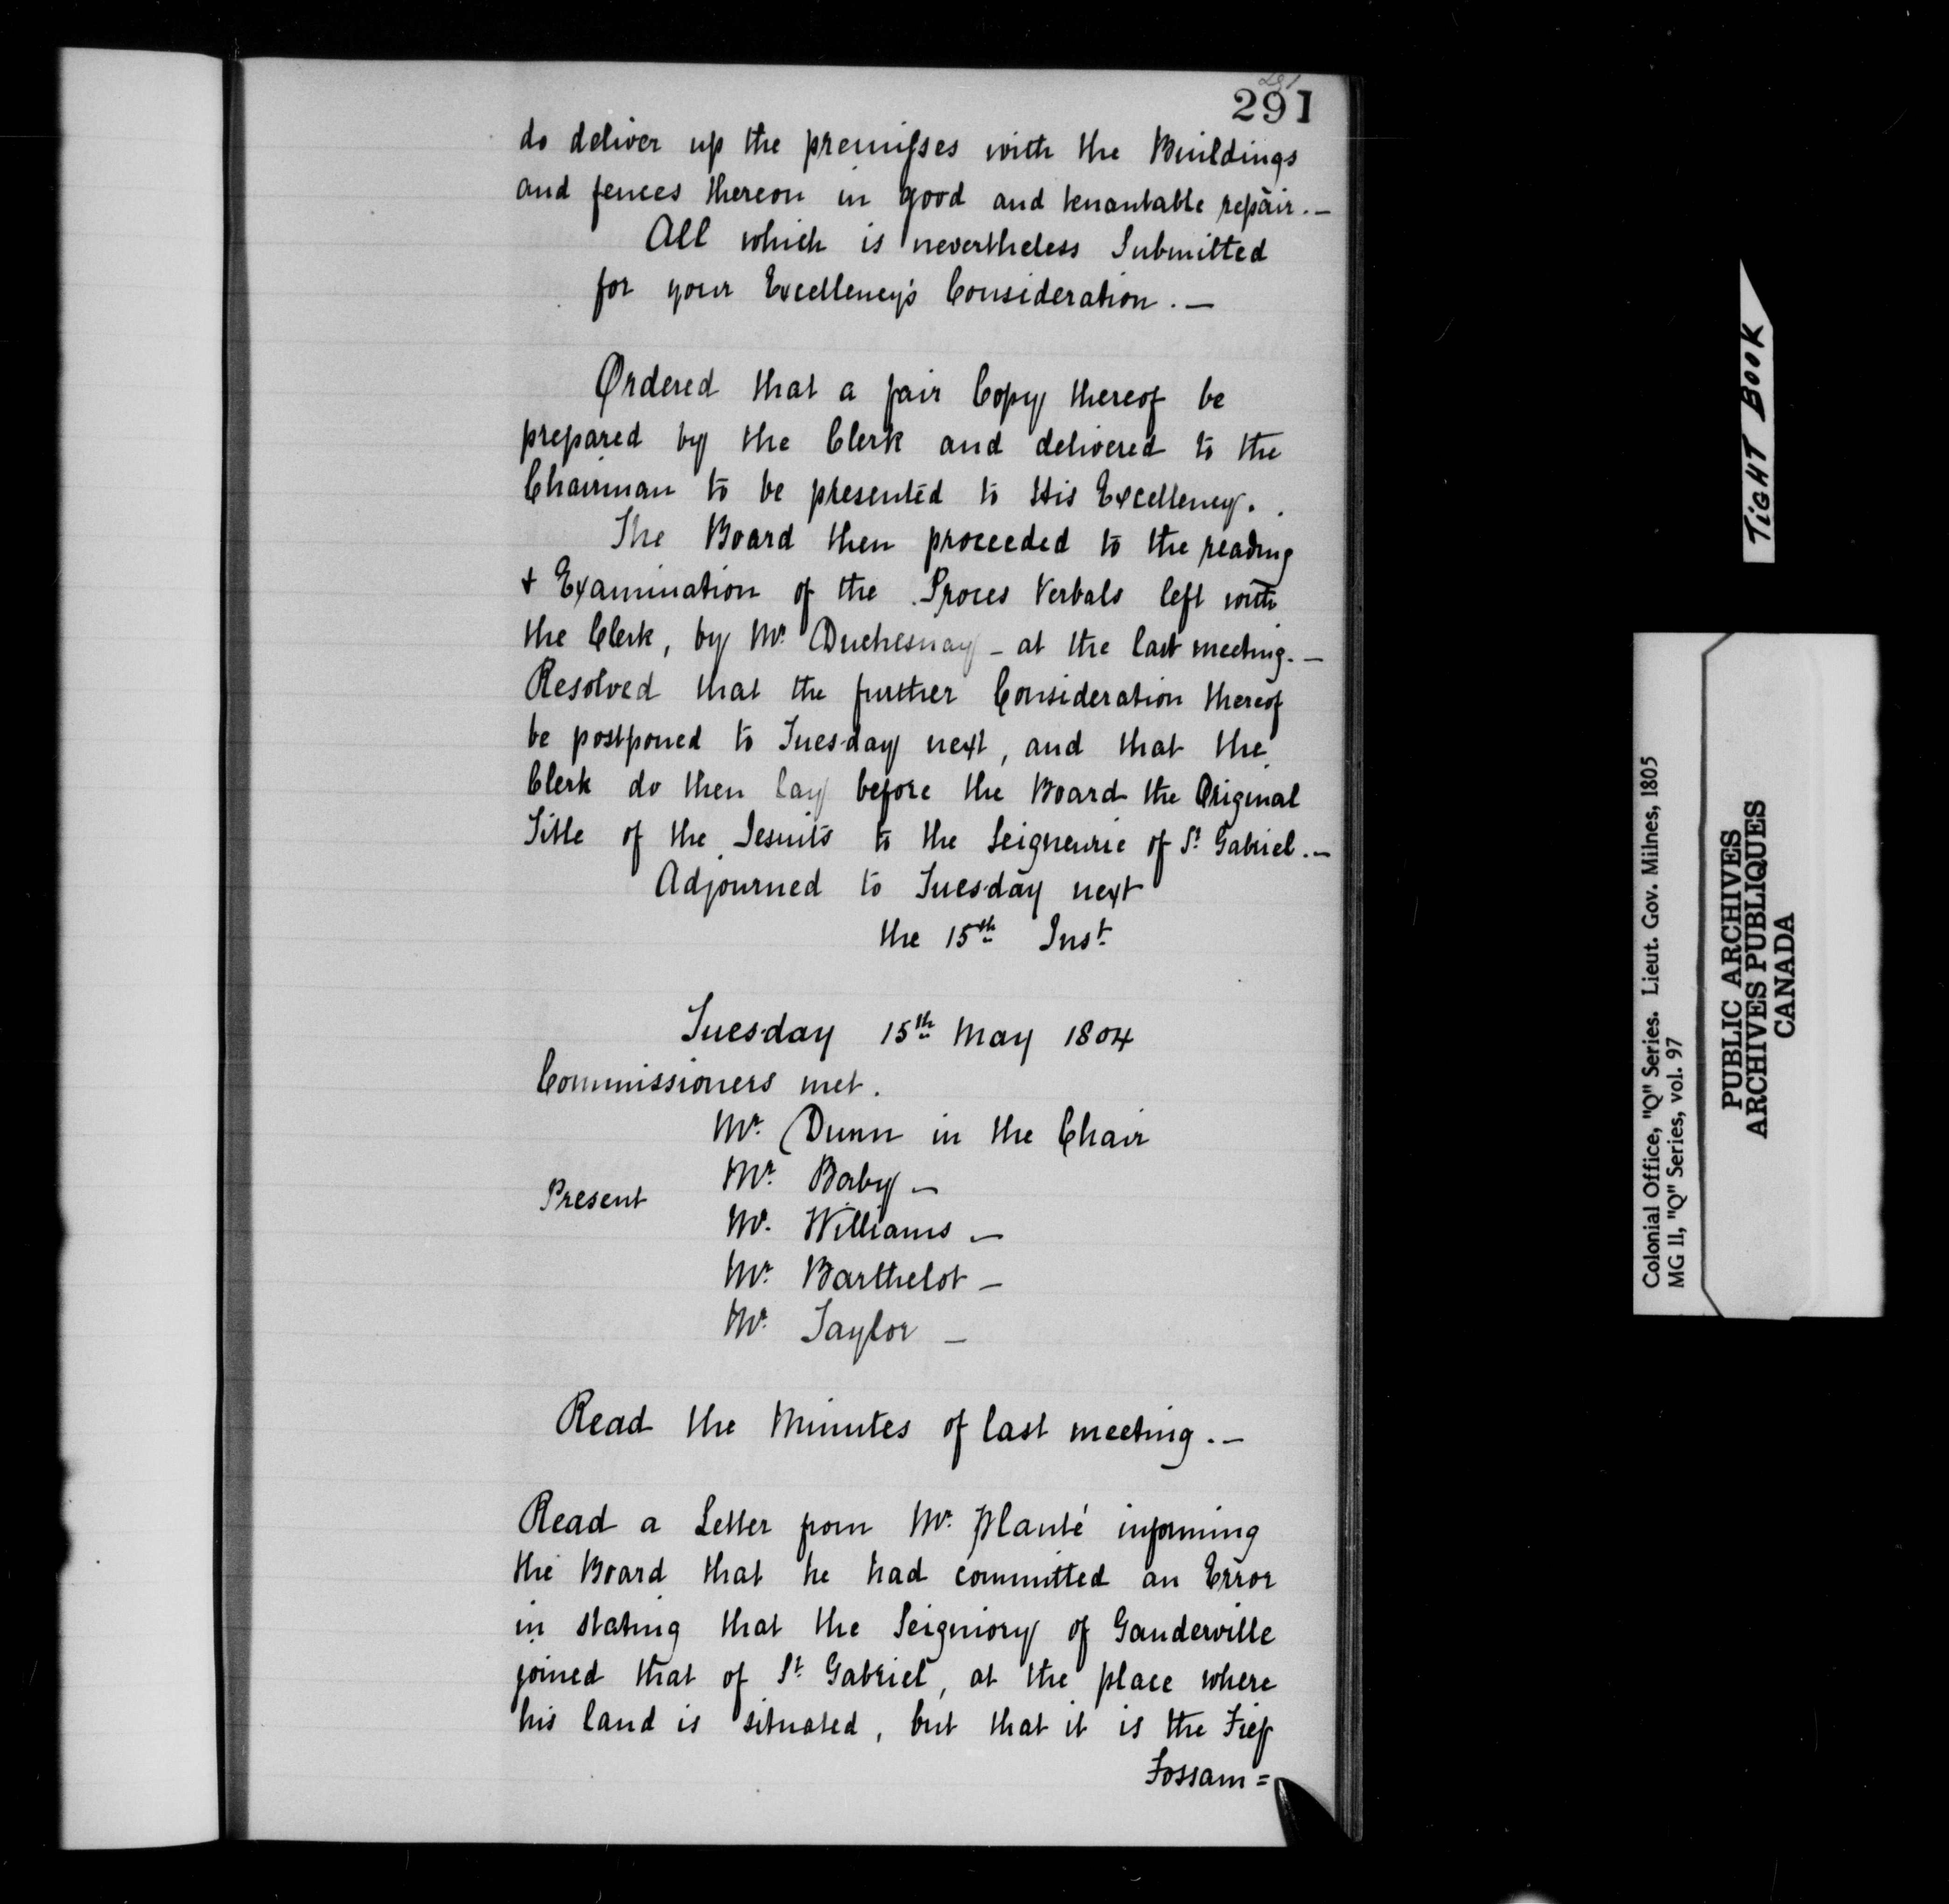 291
do deliver up the premisses with the Buildings
and fences thereon in good and tenantable repair. —
All which is nevertheless Submitted
for your Excellency's Consideration. —
Ordered that a fair Copy thereof be
prepared by the Clerk and delivered to the
Chairman to be presented to His Excellency. .
The Board then proceeded to the reading
& Examination of the Proces Verbals left with
the Clerk, by Mr. Duchesnay — at the last meeting. —
Resolved that the further Consideration thereof
be postponed to Tuesday next, and that the
Clerk do then lay before the Board the Original
Title of the Jesuits to the Seigneurie of St. Gabriel. —
Adjourned to Tuesday next
the 15th Inst.
Tuesday 15th May 1804
Commissioners met.
Mr. Dunn in the Chair
Mr. Baby —
Present
Mr. Williams —
Mr. Barthelot —
Mr. Taylor —
Read the Minutes of last meeting. —
Read a Letter from Mr. Planté informing
the Board that he had committed an Error
in stating that the Seigniory of Gauderville
joined that of St. Gabriel, at the place where
his land is situated, but that it is the Fief
Fossam =
TIGHT BOOK
Colonial Office, "Q" Series. Lieut. Gov. Milnes, 1805
MG 11, "Q" Series, vol. 97
PUBLIC ARCHIVES
ARCHIVES PUBLIQUES
CANADA